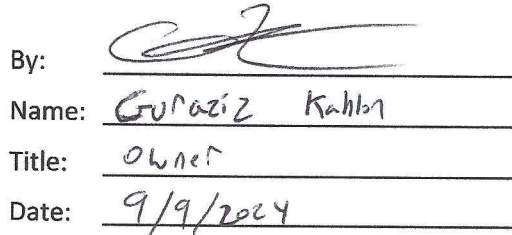 By:
Name: Guraziz Kahlon
Title: Owner
Date: 9/9/2024